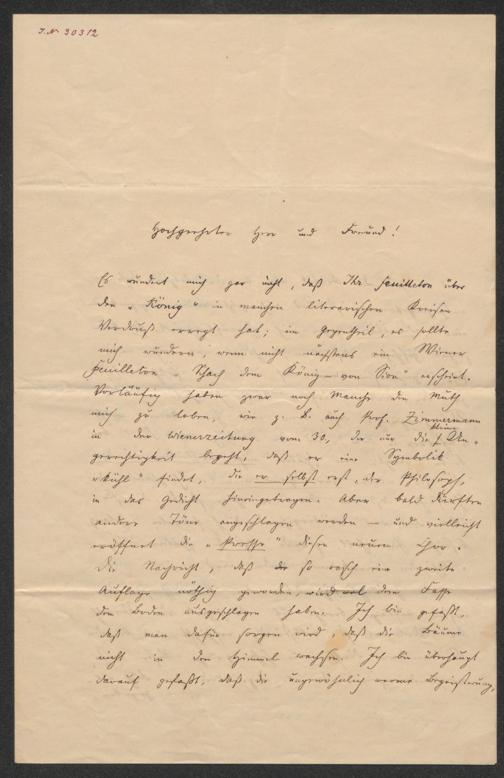 J.N. 30312
Hochgeehrter Herr und Freund!
Es wundert mich gar nicht, daß Ihr Feuilleton über
den „König" in manchen literarischen Kreisen
Verdruß erregt hat; im Gegentheil, es sollte
mich wundern, wenn nicht nächstens ein Wiener
Feuilleton „Schach dem König von Sion" erscheint.
Vorläufig haben zwar noch Manche den Muth
mich zu loben, wie z. B. auch Prof. Zimmermann
in der Wienerzeitung vom 30, der nur die kleine Un-
gerechtigkeit begeht, daß er eine Symbolik
„kühl" findet, die er selbst erst, der Philosoph,
in das Gedicht hineingetragen. Aber bald dürften
andere Töne angeschlagen werden — und vielleicht
eröffnet die „Presse" diesen neuen Chor.
Die Nachricht, daß so rasch eine zweite
Auflage nöthig geworden, wird wol dem Fasse
den Boden ausgeschlagen haben. Ich bin gefaßt,
daß man dafür sorgen wird, daß die Bäume
nicht in den Himmel wachsen. Ich bin überhaupt
darauf gefaßt, daß die ungewöhnlich warme Begeisterung,